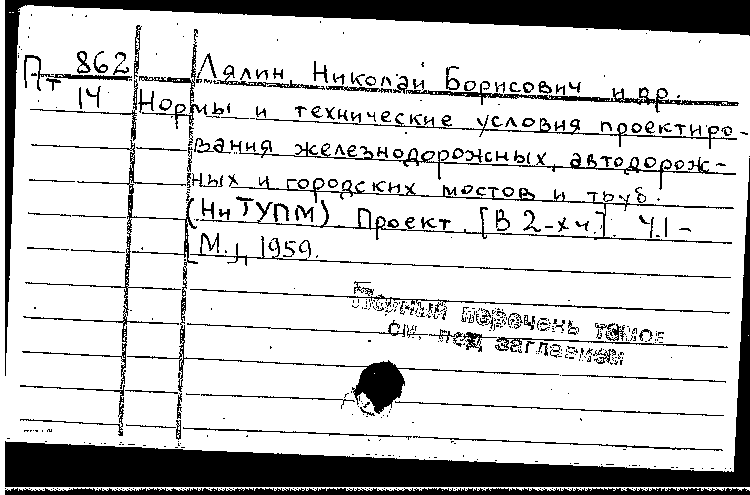 Пт 862/14
Лялин, Николай Борисович и др.
Нормы и технические условия проектиро-
вания железнодорожных, автодорож-
ных и городских мостов и труб.
(НиТУПМ). Проект. [В 2-х ч.]. Ч.1-
[М.], 1959.
Полный перечень томов
см. под заглавием